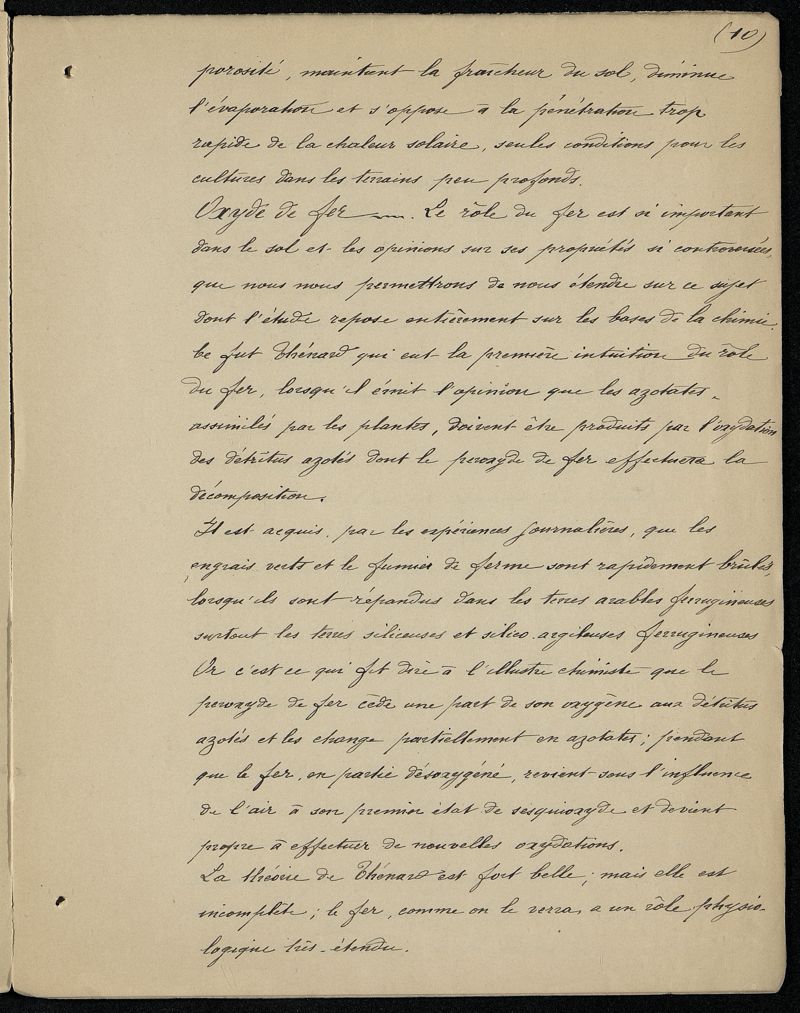 (10)
porosité, maintient la fraîcheur du sol, diminue
l'évaporation et s'oppose à la pénétration trop
rapide de la chaleur solaire, seules conditions pour les
cultures dans les terrains peu profonds.
Oxyde de fer ——. Le rôle du fer est si important
dans le sol et les opinions sur ses propriétés si controversées,
que nous nous permettrons de nous étendre sur ce sujet
dont l'étude repose entièrement sur les bases de la chimie.
Ce fut Thénard qui eut la première intuition du rôle
du fer, lorsqu'il émit l'opinion que les azotates
assimilés par les plantes, doivent être produits par l'oxydation
des détritus azotés dont le peroxyde de fer effectuera la
décomposition.
Il est acquis, par les expériences journalières, que les
engrais verts et le fumier de ferme sont rapidement brûlés,
lorsqu'ils sont répandus dans les terres arables ferrugineuses
surtout les terres siliceuses et silico-argileuses ferrugineuses
Or c'est ce qui fit dire à l'illustre chimiste que le
peroxyde de fer cède une part de son oxygène aux détritus
azotés et les change partiellement en azotates; pendant
que le fer, en partie désoxygéné, revient sous l'influence
de l'air à son premier état de sesquioxyde et devient
propre à effectuer de nouvelles oxydations.
La théorie de Thénard est fort belle; mais elle est
incomplète; le fer, comme on le verra, a un rôle physio-
logique très-étendu.